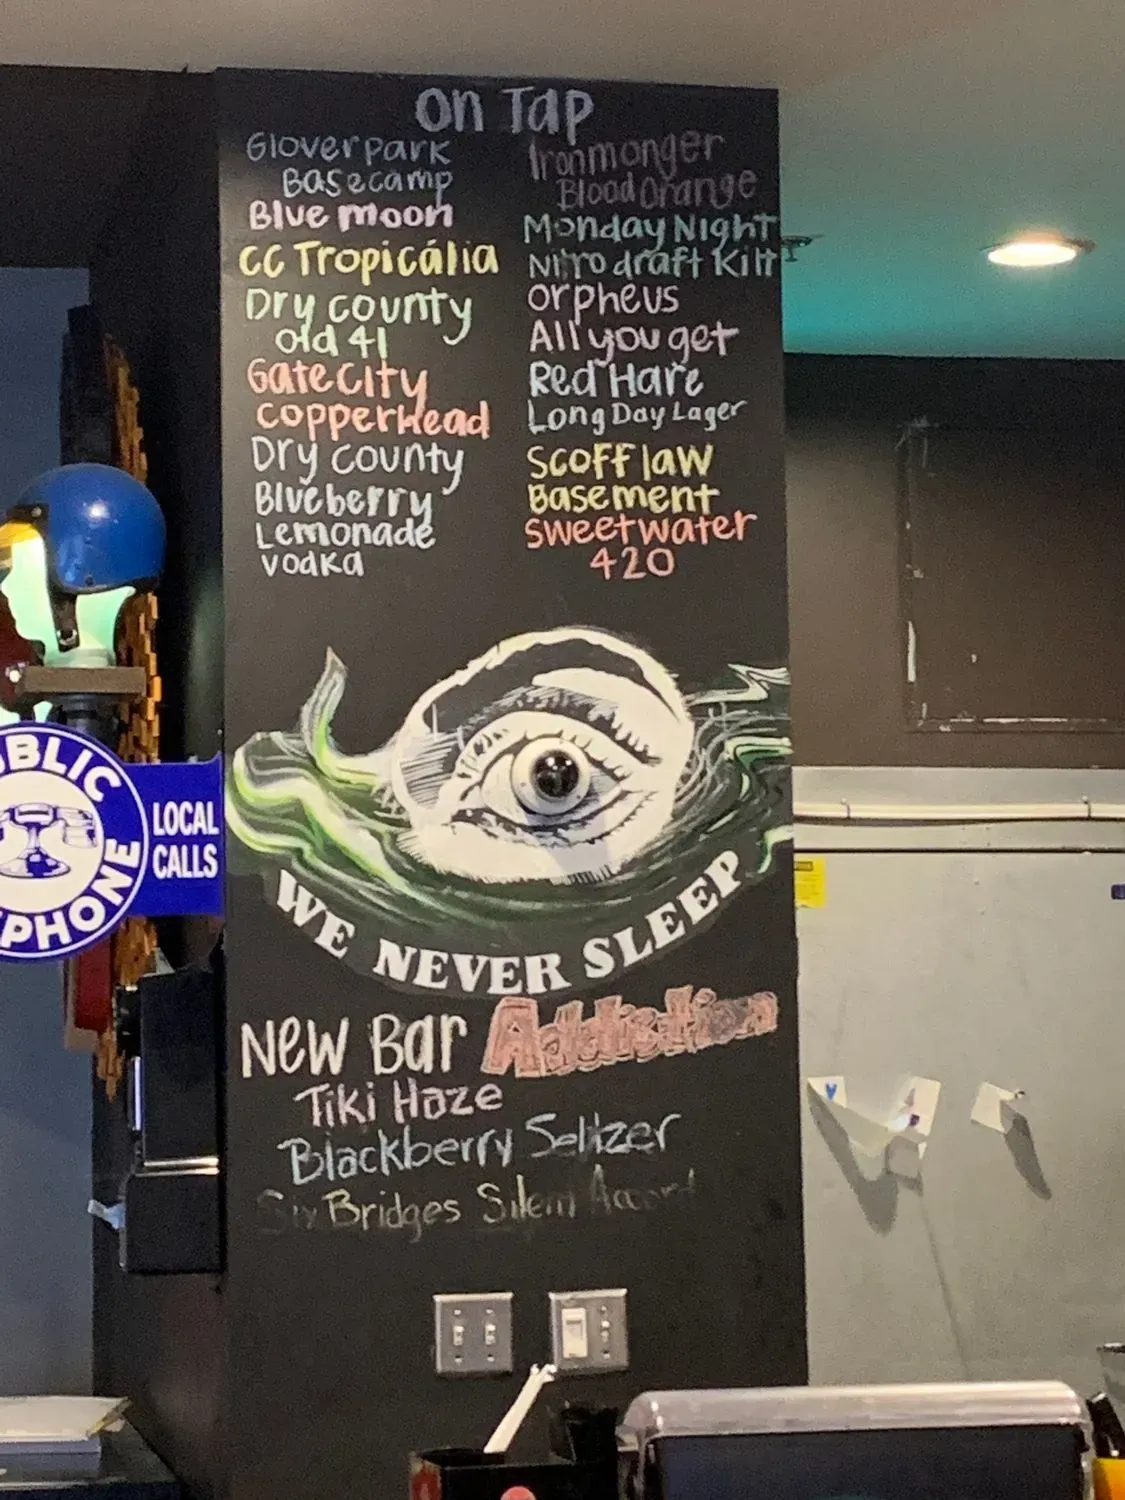 On Tap
Gloverpark
Basecamp
Blue moon
CC Tropicália
Dry county
old 41
Gate City
copperhead
Dry county
Blueberry
Lemonade
vodka
Ironmonger
Blood Orange
Monday Night
Nitro draft Kilt
Orpheus
All you get
Red Hare
Long Day Lager
Scofflaw
Basement
Sweetwater
420
PUBLIC
LOCAL
CALLS
WE NEVER SLEEP
New Bar Addisition
Tiki Haze
Blackberry Seltzer
Six Bridges Silent